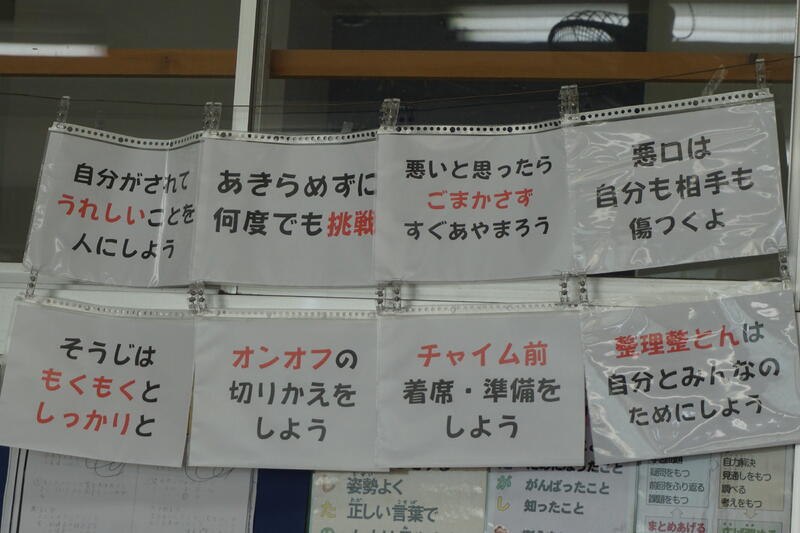 自分がされて
うれしいことを
人にしよう
あきらめずに
何度でも挑戦
悪いと思ったら
ごまかさず
すぐあやまろう
悪口は
自分も相手も
傷つくよ
そうじは
もくもくと
しっかりと
オンオフの
切りかえを
しよう
チャイム前
着席・準備を
しよう
整理整とんは
自分とみんなの
ためにしよう
姿勢よく
正しい言葉で
がんばったこと
知ったこと
疑問をもつ
前回をふり返る
課題をもつ
まとめあげる
自力解決
見通しをもつ
調べる
考えをもつ